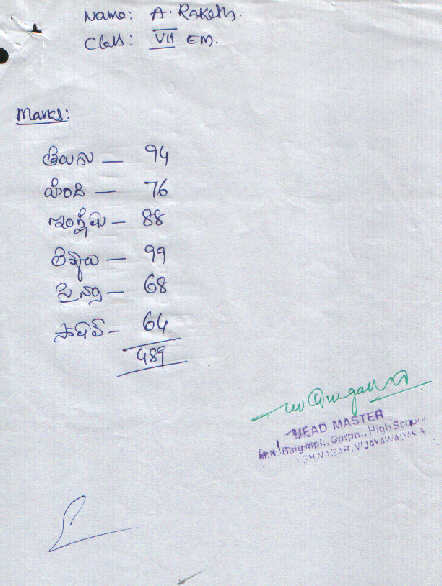 Name: A. Rakesh.
Class: VII EM.
Marks:
తెలుగు — 94
హింది — 76
ఇంగ్లీషు — 88
లెక్కలు — 99
సైన్సు — 68
సోషల్ — 64
489
HEAD MASTER
High School
VIJAYAWADA